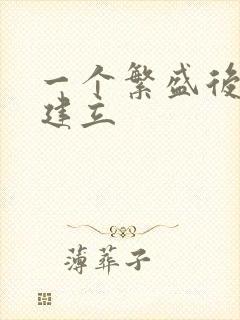 一个繁盛後
建立
薄葬子